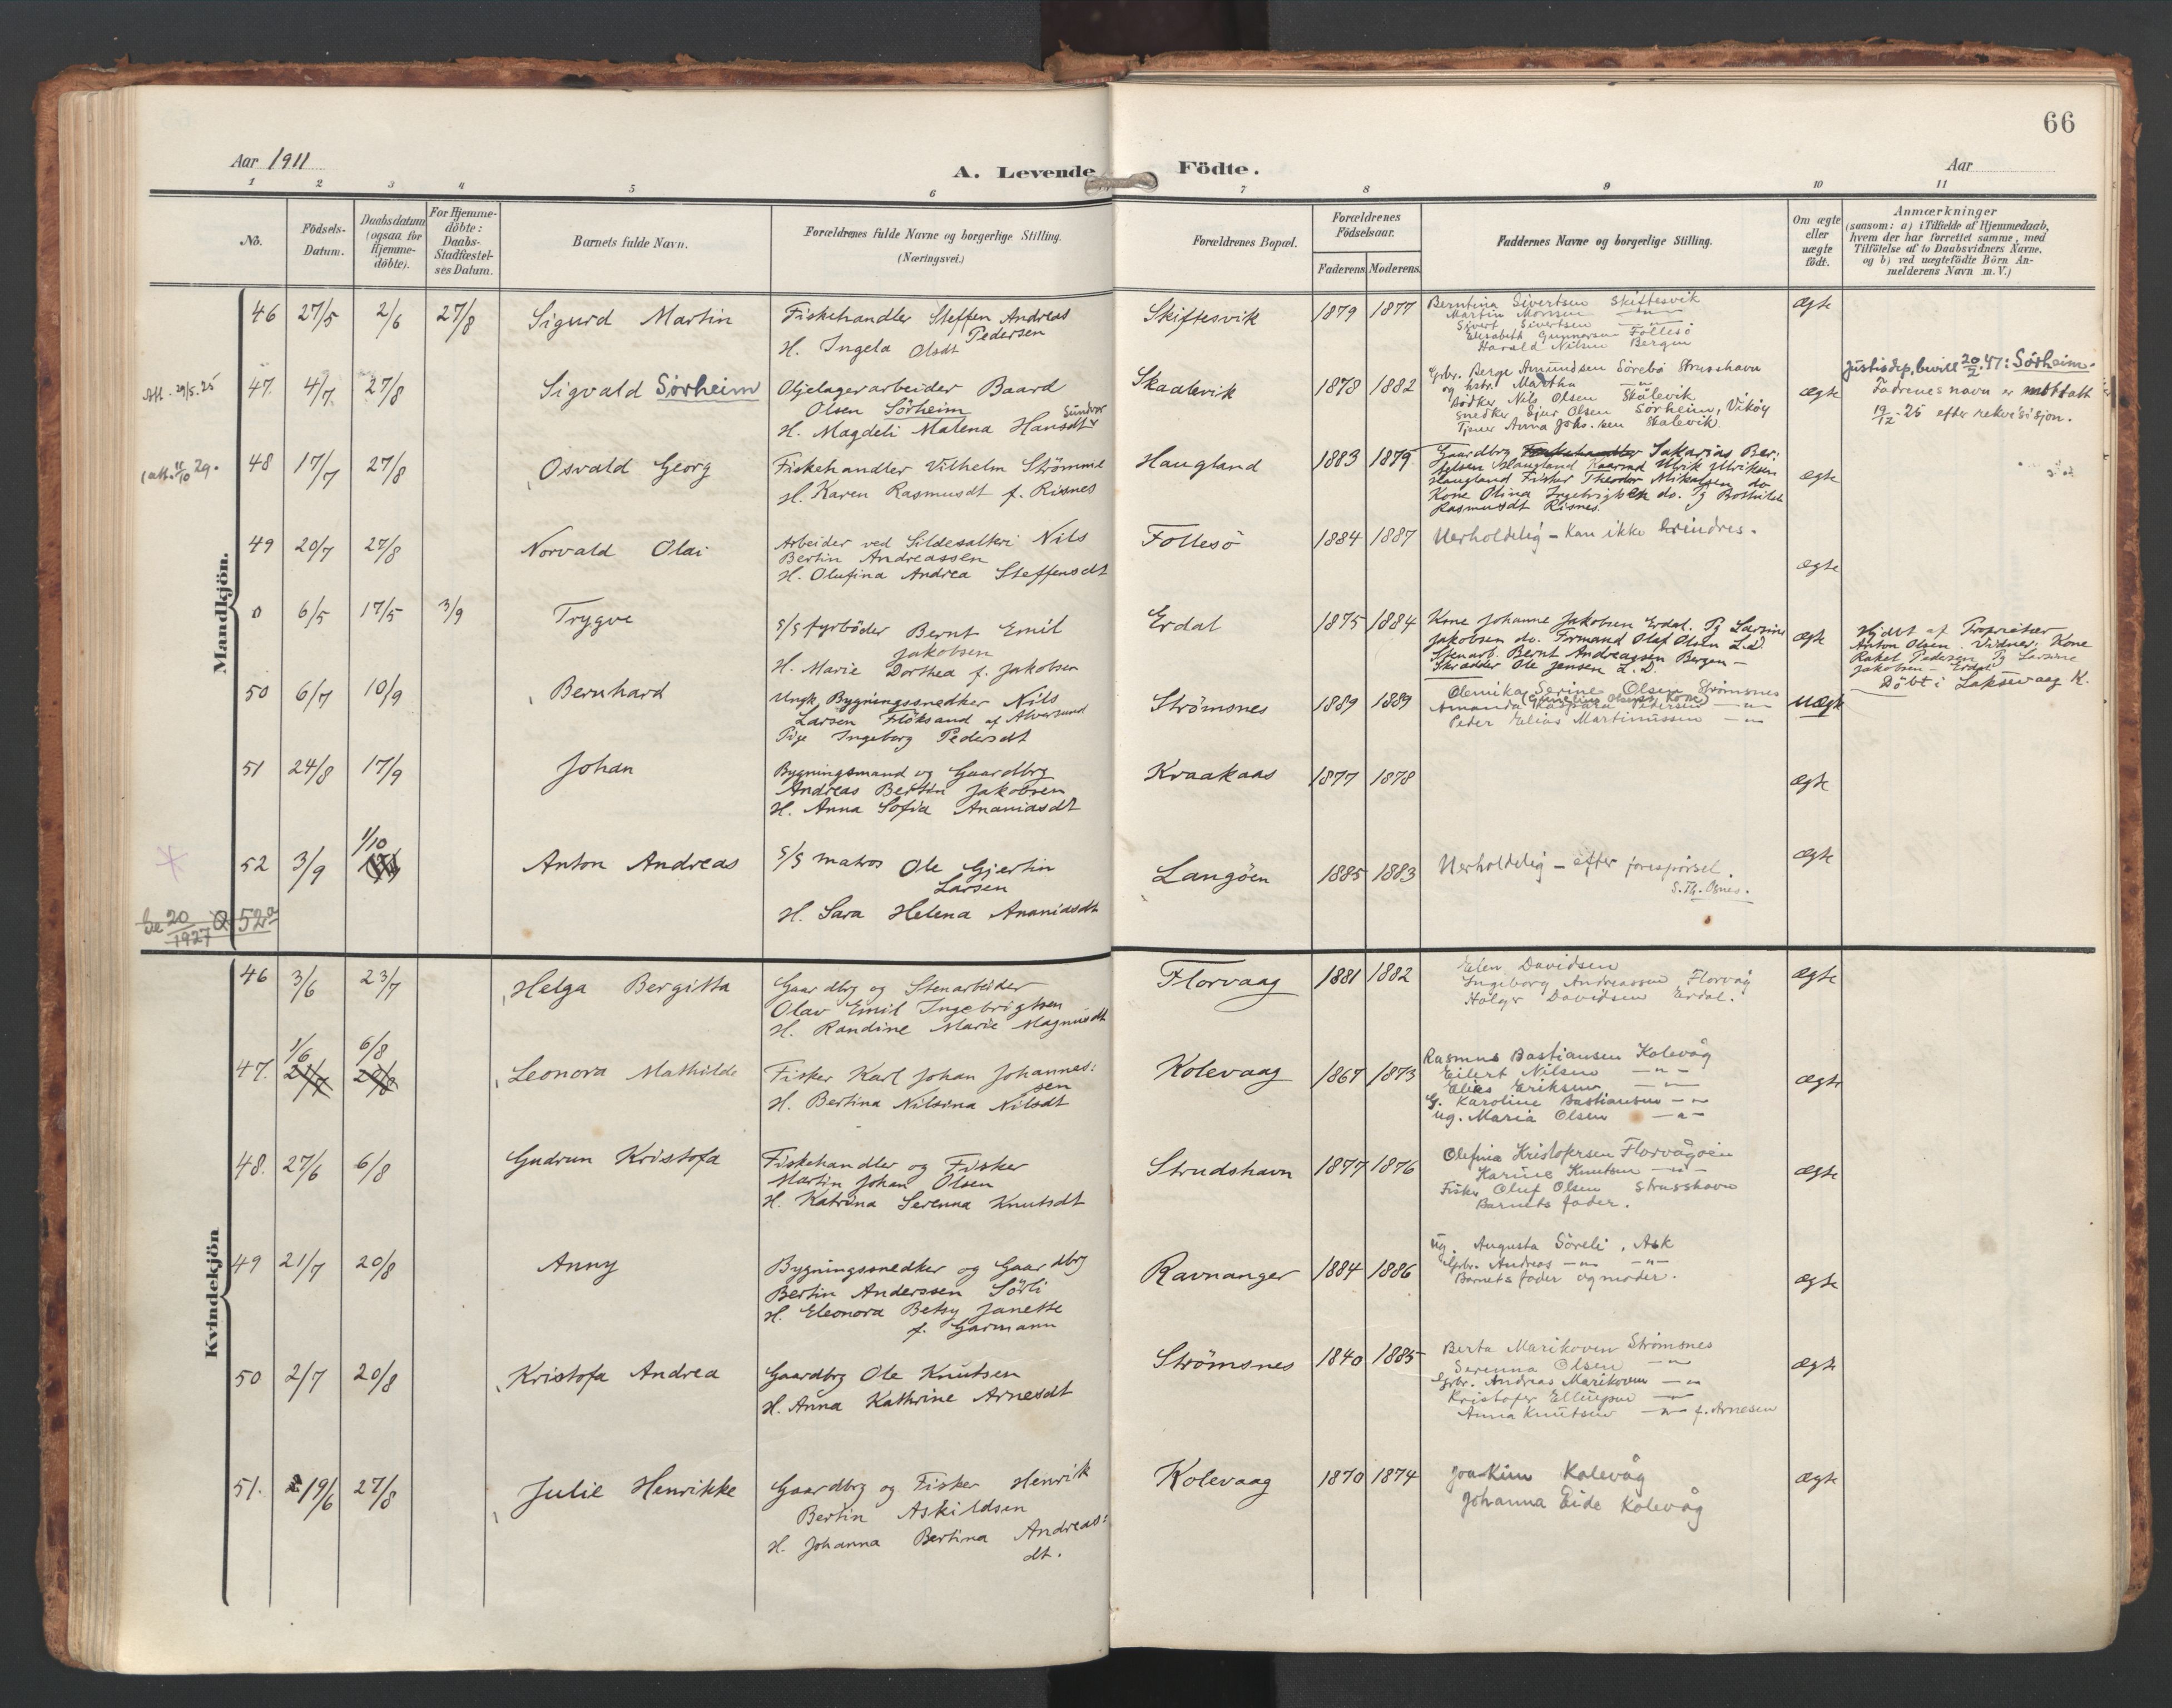 66
Aar 1911
A. Levende Födte.
Aar
1 2 3 4 5 6 7 8 9 10 11
No.
Födsels-
Datum.
Daabsdatum
(ogsaa for
Hjemme-
döbte).
For Hjemme-
döbte:
Daabs-
Stadfæstel-
ses Datum.
Barnets fulde Navn.
Forældrenes fulde Navne og borgerlige Stilling.
(Næringsvei.)
Forældrenes Bopæl.
Forældrenes
Födselsaar.
Faderens. Moderens.
Faddernes Navne og borgerlige Stilling.
Om ægte
eller
uægte
födt.
Anmærkninger
(saasom: a) i Tilfælde af Hjemmedaab,
hvem der har forrettet samme, med
Tilföielse af to Daabsvidners Navne,
og b) ved uægtefödte Börn An-
melderens Navn m. V.)
Mandkjön.
46 27/5 2/6 27/8 Sigurd Martin
Fiskehandler Steffen Andreas
Pedersen
H. Ingela Olsdt
Skiftesvik 1879 1877
Berntina Sivertsen Skiftesvik
Martin Monsen
Sivert Sivertsen
Elisabeth Gunnarsen Follesö
Harald Nilsen Bergen
ægte
Att. 29/5.25
47. 4/7 27/8 Sigvald Sörheim
Oljelagerarbeider Baard
Olsen Sörheim
H. Magdeli Malena Hansdt
Skaalevik 1878 1882
Grbr. Berge Amundsen Sörebö Strusshavn
og hstr. Martha
Bödker Nils Olsen Skålevik
Snedker Sjur Olsen Sörheim, Viköy
Tjener Anna Johs.sen Skålevik
ægte
Justisdep. bevill 20/2.47: Sörheim.
Fadrenes navn er mottatt
19/12-25 efter rekvisisjon.
(att. 11/10 29.
48 17/7 27/8 Osvald Georg
Fiskehandler Vilhelm Strömme
H. Karen Rasmusdt f. Risnes
Haugland 1883 1875
Gaardbrg Sakarias Ber:
telsen Haugland Ulrik Ulriksen
Haugland Fisker Theodor Mikalsen do
Kone Olina Ingebrigtsen do. Pg Bothilde
Rasmusdt Risnes.
ægte
49 20/7 27/8 Norvald Olai
Arbeider ved Sildesalteri Nils
Bertin Andreassen
H. Olufina Andrea Steffensdt
Follesö 1884 1887
Uerholdelig - Kan ikke erindres.
ægte
0 6/5 17/5 3/9 Trygve
S/S fyrböder Bernt Emil
Jakobsen
H. Marie Dorthea f. Jakobsen
Erdal 1875 1884
Kone Johanne Jakobsen Erdal. Pg Larsine
Jakobsen do. Formand Olaf Olsen L.d.
Stenarb. Bernt Andreassen Bergen -
Skrædder Ole Jensen L.d.
ægte
Hjdbt af Proprietær
Anton Olsen. Vidner: Kone
Rakel Pedersen Pg Larsine
Jakobsen - Erdal.
Döbt i Laksevaag K.
50 6/7 10/9 Bernhard
Ungk. Bygningssnedker Nils
Larsen Flöksand af Alversund
Pige Ingeborg Pedersdt
Strömsnes 1889 1889
Olenika Serine Olsen Strömsnes
Amanda Kaspara Pedersen
Peder Elias Martinussen
uægte
51 24/8 17/9 Johan
Bygningsmand og Gaardbrg
Andreas Bertin Jakobsen
H. Anna Sofia Ananiasdt
Kraakaas 1877 1878
ægte
52 3/9 1/10 Anton Andreas
S/S matros Ole Gjertin
Larsen
H. Sara Helena Ananiasdt
Langöen 1885 1883
Uerholdelig - efter forespörsel.
S.Th. Osnes.
ægte
Se 20/1927 52a
Kvindekjön
46 3/6 23/7 Helga Bergitta
Gaardbrg og Stenarbeider
Olav Emil Ingebrigtsen
H. Randine Marie Magnusdt
Florvaag 1881 1882
Elen Davidsen
Ingeborg Andreassen Florvåg
Holger Davidsen Erdal.
ægte
47. 1/6 6/8
21/7 27/8
Leonora Mathilde
Fisker Karl Johan Johannes:
sen
H. Bertina Nilsina Nilsdt
Kolevaag 1867 1873
Rasmus Bastiansen Kolevåg
Eilert Nilsen
Elias Eriksen
G. Karoline Bastiansen
ug. Maria Olsen
ægte
48. 27/6 6/8 Gudrun Kristofa
Fiskehandler og Fisker
Martin Johan Olsen
H. Katrina Serenna Knutsdt
Strudshavn 1877 1876
Olefina Kristofersen Florvågöen
Karine Knutsen
Fisker Oluf Olsen Strusshavn
Barnets fader.
ægte
49 21/7 20/8 Anny
Bygningssnedker og Gaardbrg
Bertin Anderssen Sörli
H. Eleonora Betsy Janette
f. Garmann
Ravnanger 1884 1886
ug. Augusta Söreli, Ask
Grbr. Andreas
Barnets fader og moder.
ægte
50 2/7 20/8 Kristofa Andrea
Gaardbrg Ole Knutsen
H. Anna Kathrine Arnesdt
Strömsnes 1840 1885
Berta Marikoven Strömsnes
Serenna Olsen
Grbr. Andreas Marikoven
Kristofer Ellingsen
Anna Knutsen f. Arnesen
ægte
51. 19/6 27/8 Julie Henrikke
Gaardbrg og Fisker Henrik
Bertin Askildsen
H. Johanna Bertina Andreas:
dt.
Kolevaag 1870 1874
Joakim Kolevåg
Johanna Eide Kolevåg
ægte